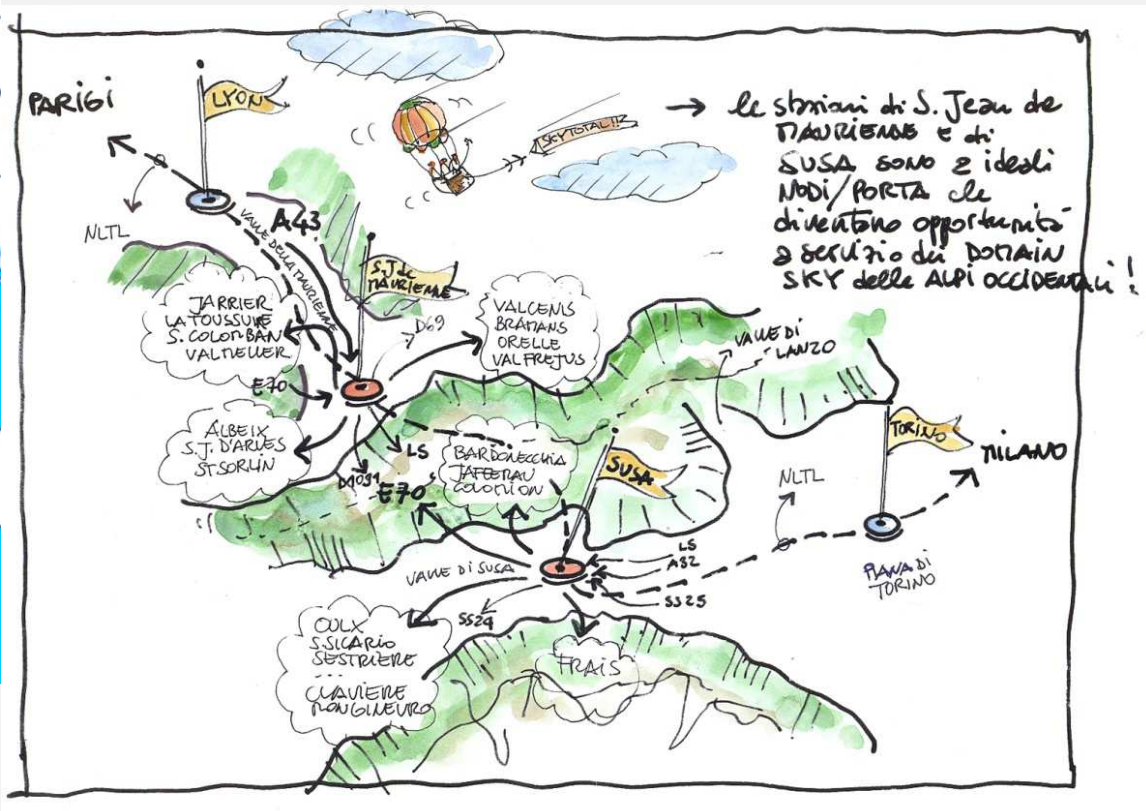 PARIGI
LYON
SKYTOTAL!!
→ le stazioni di S. Jean de
MAURIENNE E di
SUSA SONO 2 ideali
NODI/PORTA che
diventano opportunità
a servizio dei DOMAIN
SKY delle ALPI OCCIDENTALI!
NLTL
VALLE DELLA MAURIENNE
A43
S.J de
MAURIENNE
JARRIER
LA TOUSSUIRE
S. COLOMBAN
VALMELLER
D69
VALCENIS
BRAMANS
ORELLE
VALFREJUS
VALLE DI
LANZO
E70
ALBEIX
S.J. D'ARVES
ST SORLIN
LS
D1091
E70
BARDONECCHIA
JAFFERAU
COLOMION
SUSA
TORINO
MILANO
NLTL
PIANA DI
TORINO
VALLE DI SUSA
LS
A32
SS25
SS24
OULX
S.SICARIO
SESTRIERE
...
CLAVIERE
MONGINEVRO
FRAIS